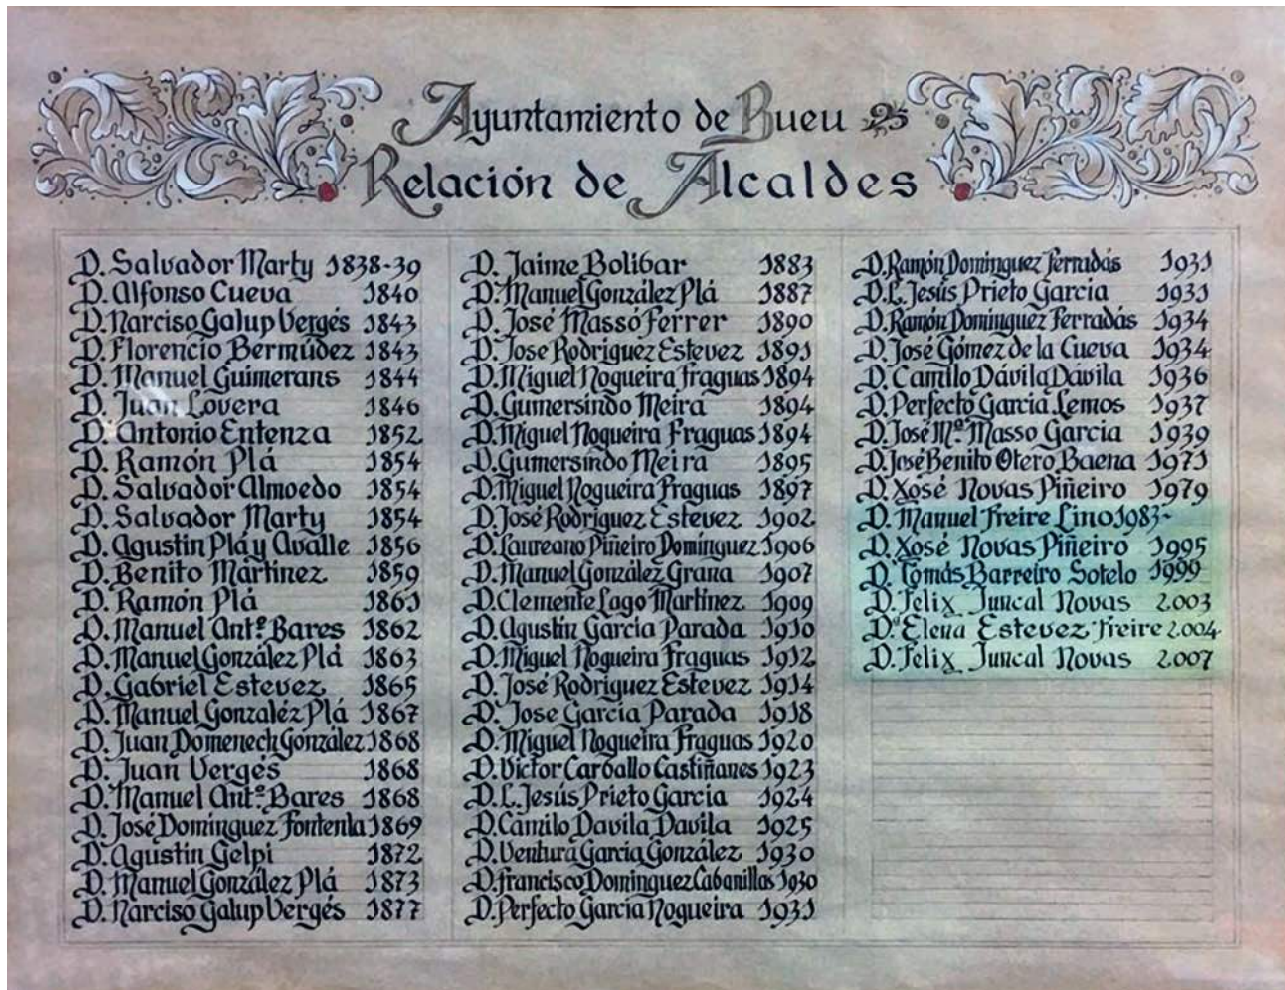 Ayuntamiento de Bueu
Relación de Alcaldes
D. Salvador Marty 1838-39
D. Alfonso Cueva 1840
D. Narciso Galup Vergés 1843
D. Florencio Bermúdez 1843
D. Manuel Guimerans 1844
D. Juan Lovera 1846
D. Antonio Entenza 1852
D. Ramón Plá 1854
D. Salvador Almoedo 1854
D. Salvador Marty 1854
D. Agustin Plá y Avalle 1856
D. Benito Mártinez 1859
D. Ramón Plá 1861
D. Manuel Antº Bares 1862
D. Manuel González Plá 1863
D. Gabriel Estevez 1865
D. Manuel Gonzaléz Plá 1867
D. Juan Domenech González 1868
D. Juan Vergés 1868
D. Manuel Antº Bares 1868
D. José Domínguez Fontenla 1869
D. Agustin Gelpi 1872
D. Manuel González Plá 1873
D. Narciso Galup Vergés 1877
D. Jaime Bolibar 1883
D. Manuel González Plá 1887
D. José Massó Ferrer 1890
D. Jose Rodriguez Estevez 1891
D. Miguel Nogueira Fraguas 1894
D. Gumersindo Meira 1894
D. Miguel Nogueira Fraguas 1894
D. Gumersindo Meira 1895
D. Miguel Nogueira Fraguas 1897
D. José Rodríguez Estevez 1902
D. Laureano Piñeiro Domínguez 1906
D. Manuel González Grana 1907
D. Clemente Lago Martínez 1909
D. Agustín García Parada 1910
D. Miguel Nogueira Fraguas 1912
D. José Rodríguez Estevez 1914
D. Jose Garcia Parada 1918
D. Miguel Nogueira Fraguas 1920
D. Victor Carballo Castiñanes 1923
D. L. Jesús Prieto Garcia 1924
D. Camilo Davila Davila 1925
D. Ventura Garcia González 1930
D. Francisco Dominguez Cabanillas 1930
D. Perfecto Garcia Nogueira 1931
D. Ramón Dominguez Ferradás 1931
D. L. Jesús Prieto Garcia 1931
D. Ramón Domínguez Ferradás 1934
D. José Gómez de la Cueva 1934
D. Camilo Dávila Dávila 1936
D. Perfecto Garcia Lemos 1937
D. José Mª Masso Garcia 1939
D. José Benito Otero Baena 1971
D. Xosé Novas Piñeiro 1979
D. Manuel Freire Lino 1983-
D. Xosé Novas Piñeiro 1995
D. Tomás Barreiro Sotelo 1999
D. Felix Juncal Novas 2.003
Dª Elena Estevez Freire 2.004
D. Felix Juncal Novas 2.007